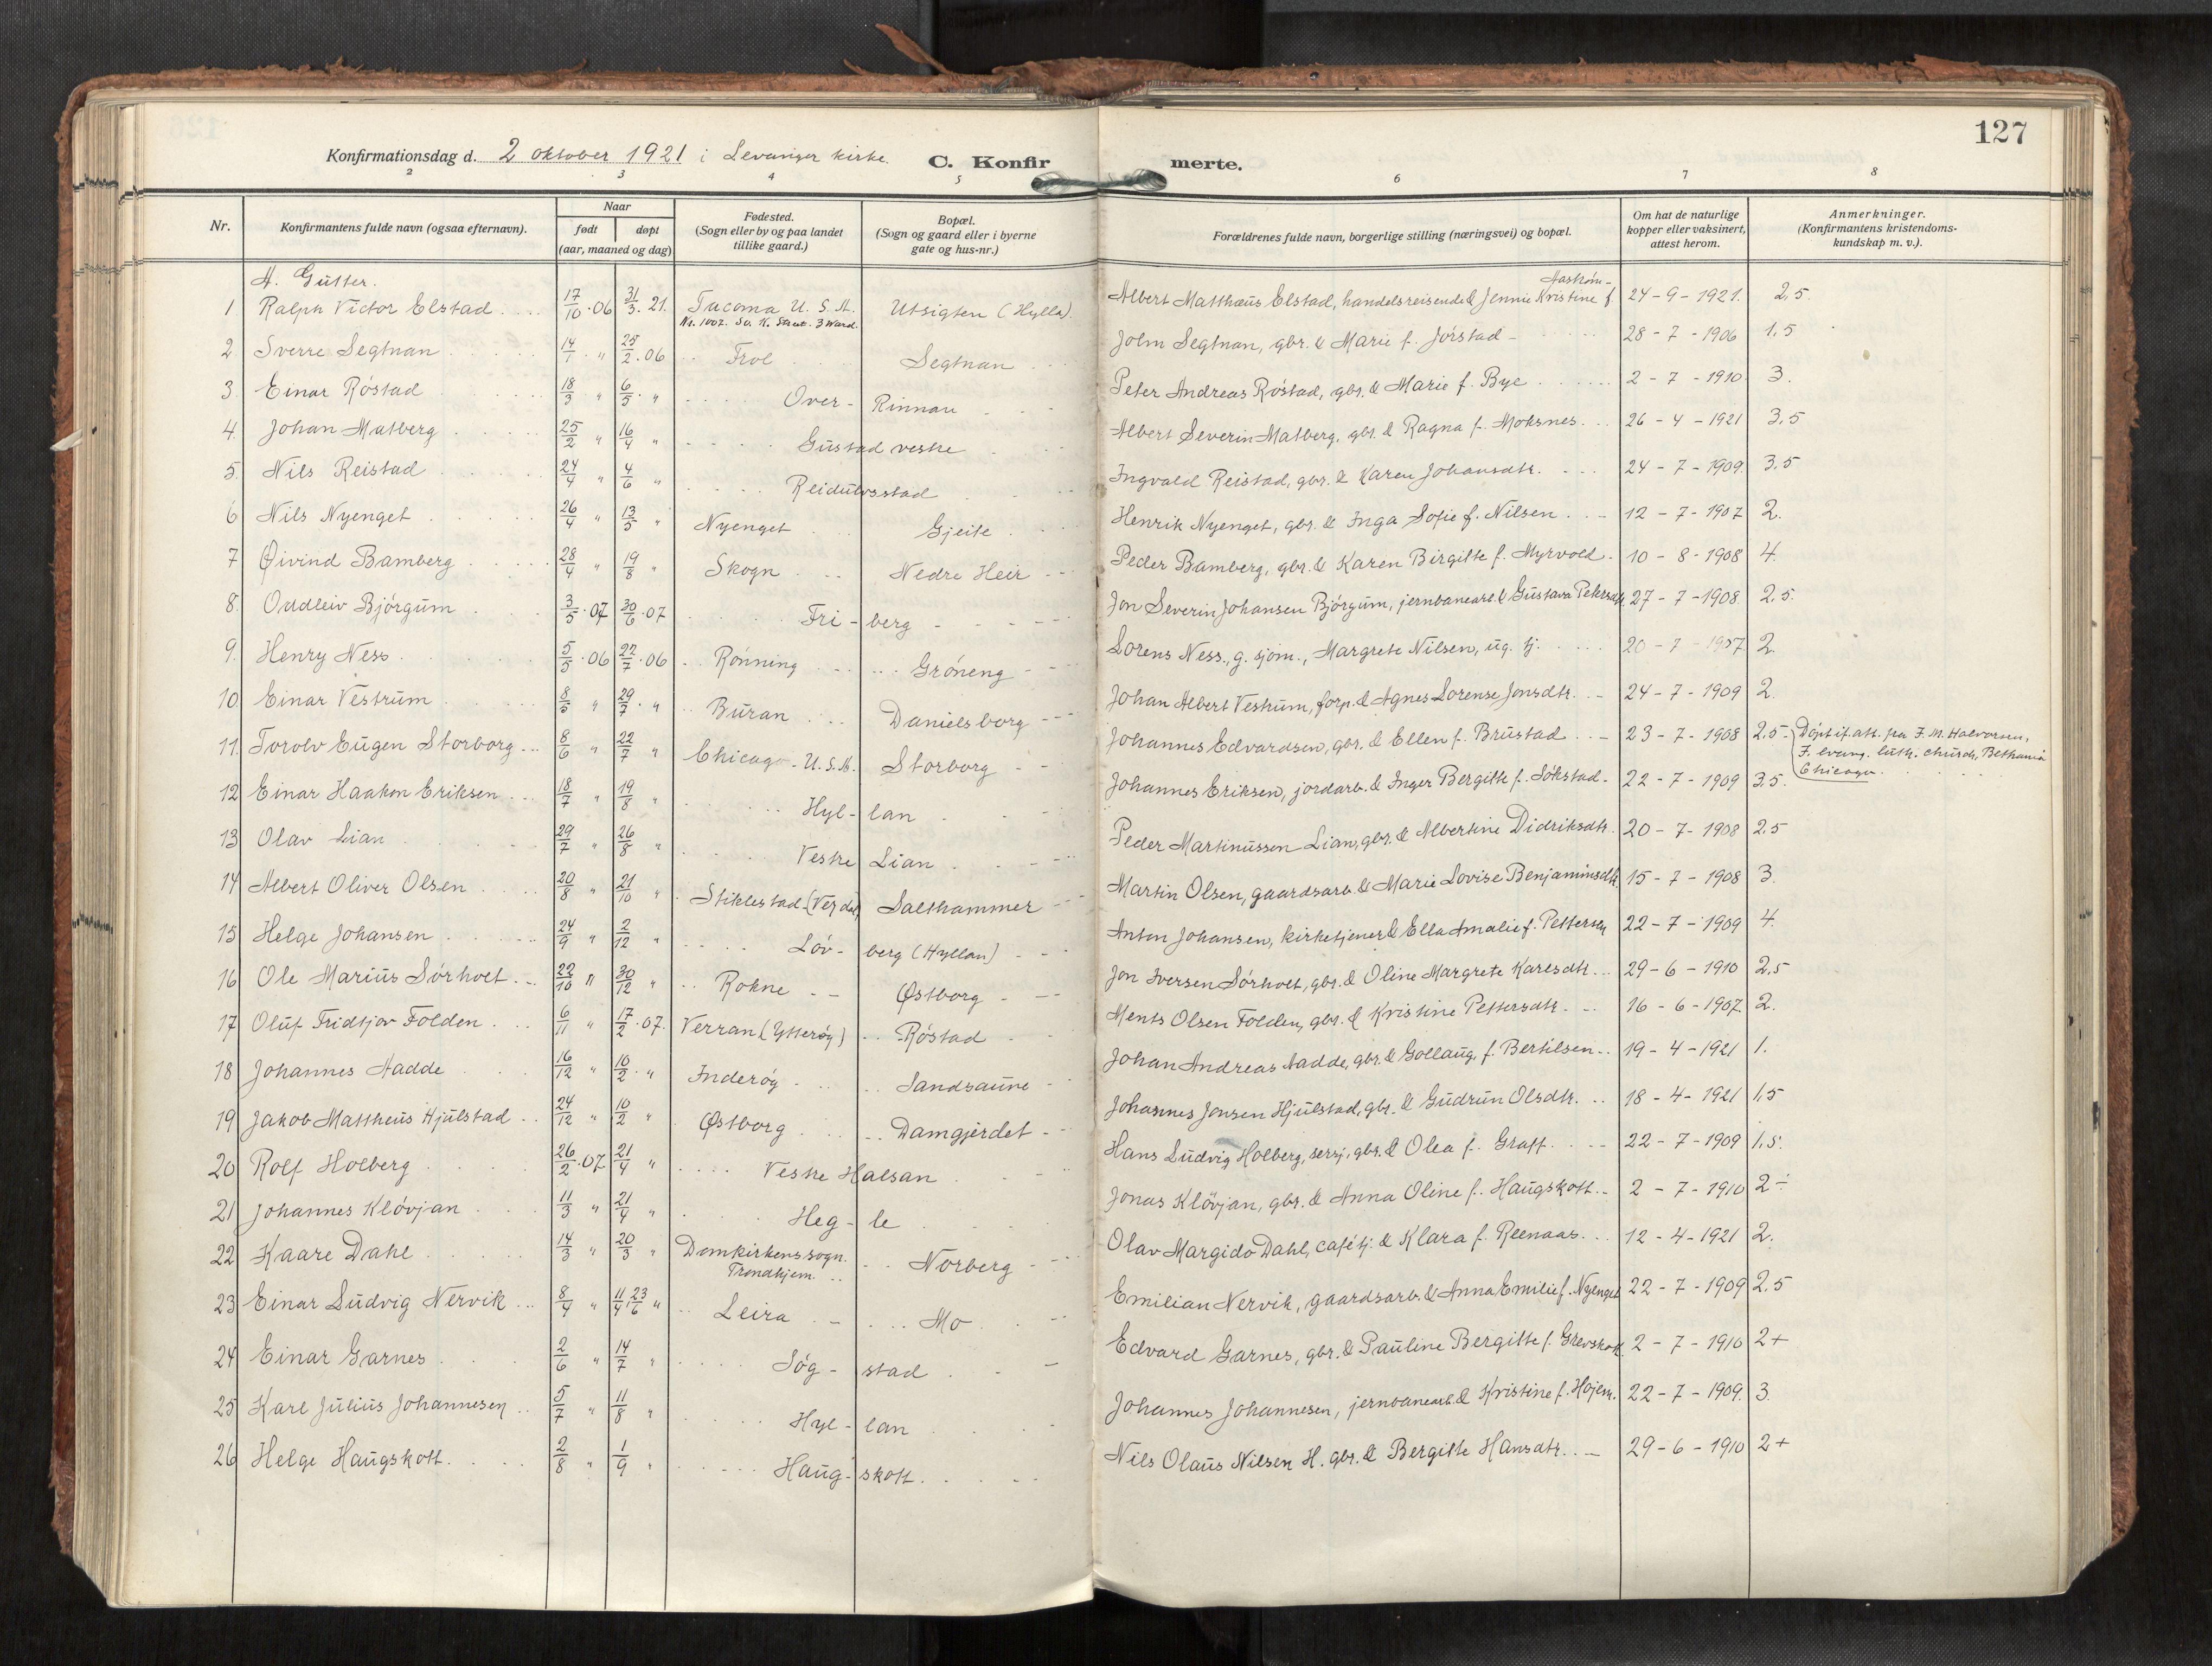 127
Konfirmationsdag d. 2 oktober 1921 i Levanger kirke. C. Konfirmerte.
2 3 4 5 6 7 8
Nr. Konfirmantens fulde navn (ogsaa efternavn). Naar født døpt (aar, maaned og dag) Fødested. (Sogn eller by og paa landet tillike gaard.) Bopæl. (Sogn og gaard eller i byerne gate og hus-nr.) Forældrenes fulde navn, borgerlige stilling (næringsvei) og bopæl. Om hat de naturlige kopper eller vaksinert, attest herom. Anmerkninger. (Konfirmantens kristendoms-kundskap m. v.).
A. Gutter.
1 Ralph Victor Elstad 17/10 06 31/3 21. Tacoma U.S.A. Nr. 1007. So. K. Street. 3 Ward. Utsigten (Hylla). Albert Matthæus Elstad, handelsreisende & Jennie Kristine f. Aaström 24-9-1921. 2,5.
2 Sverre Segtnan 14/1 " 25/2 06 Frol Segtnan John Segtnan, gbr. & Marie f. Jörstad 28-7-1906 1,5
3. Einar Röstad 18/3 " 6/5 " Over-Rinnan Peter Andreas Röstad, gbr. & Marie f. Bye 2-7-1910 3.
4. Johan Matberg 25/2 " 16/4 " Gustad vestre Albert Severin Matberg, gbr. & Ragna f. Moksnes 26-4-1921 3,5
5. Nils Reistad 24/4 " 4/6 " Reidulvsstad Ingvald Reistad, gbr. & Karen Johansdtr. 24-7-1909. 3,5
6 Nils Nyenget 26/4 " 13/5 " Nyenget Gjeite Henrik Nyenget, gbr. & Inga Sofie f. Nilsen 12-7-1907 2.
7 Øivind Bamberg 28/4 " 19/8 " Skogn Nedre Heir Peder Bamberg, gbr. & Karen Birgitte f. Myrvold 10-8-1908 4.
8. Oddleiv Björgum 3/5 07 30/6 07 Fri-berg Jon Severin Johansen Björgum, jernbanearb. & Gustava Petersdtr. 27-7-1908. 2,5.
9. Henry Ness 5/5 06 22/7 06 Rönning Gröneng Lorens Ness, g. sjöm., Margrete Nilsen, ug. tj. 20-7-1907 2.
10. Einar Vestrum 8/5 " 29/7 " Buran Danielsborg Johan Albert Vestrum, forp. & Agnes Lorense Jonsdtr. 24-7-1909 2.
11. Torolv Eugen Storborg 8/6 " 22/7 " Chicago U.S.A. Storborg Johannes Edvardsen, gbr. & Ellen f. Brustad 23-7-1908 2,5 Döpt if. att. fra F. M. Halvorsen, F. evang. luth. church, Bethania Chicago.
12 Einar Haakon Eriksen 18/7 " 19/8 " Hyl-lan Johannes Eriksen, jordarb. & Inger Bergitte f. Sökstad 22-7-1909 3,5.
13 Olav Lian 29/7 " 26/8 " Vestre Lian Peder Martinussen Lian, gbr. & Albertine Didriksdtr. 20-7-1908 2,5
14 Albert Oliver Olsen 20/8 " 21/10 " Stiklestad (Verdal) Salthammer Martin Olsen, gaardsarb. & Marie Lovise Benjaminsdtr. 15-7-1908 3.
15 Helge Johansen 24/9 " 2/12 " Löv-berg (Hyllan) Anton Johansen, kirketjener & Ella Amalie f. Pettersen 22-7-1909 4.
16 Ole Marius Sörholt 22/10 " 30/12 " Rokne Østborg Jon Iversen Sörholt, gbr. & Oline Margrete Karlsdtr. 29-6-1910 2,5
17 Oluf Fridtjov Folden 6/11 " 17/2 07. Verran (Ytterøy) Röstad Ments Olsen Folden, gbr. & Kristine Pettersdtr. 16-6-1907. 2.
18 Johannes Aadde 16/12 " 10/2 " Inderöy Sandsaune Johan Andreas Aadde, gbr. & Gollaug, f. Bertilsen 19-4-1921 1.
19 Jakob Mattheus Hjulstad 24/12 " 10/2 " Østborg Damgjerdet Johannes Jensen Hjulstad, gbr. & Gudrun Olsdtr. 18-4-1921 1,5
20 Rolf Holberg 26/2 07 21/4 " Vestre Halsan Hans Ludvig Holberg, sersj., gbr. & Olea f. Graff 22-7-1909 1,5.
21 Johannes Klövjan 11/3 " 21/4 " Heg-le Jonas Klövjan, gbr. & Anna Oline f. Haugskott 2-7-1910 2÷
22 Kaare Dahl 14/3 " 20/3 " Domkirkens sogn. Trondhjem Norberg Olav Margido Dahl, cafétj. & Klara f. Reenaas 12-4-1921 2.
23 Einar Ludvig Nervik 8/4 " 11/4, 23/6 " Leira Mo Emilian Nervik, gaardsarb. & Anna Emilie f. Nyenget 22-7-1909 2,5
24 Einar Garnes 2/6 " 14/7 " Sög-stad Edvard Garnes, gbr. & Pauline Bergitte f. Grevskott 2-7-1910 2+
25 Karl Julius Johannesen 5/7 " 11/8 " Hyl-lan Johannes Johannesen, jernbanearb. & Kristine f. Hojem. 22-7-1909. 3.
26 Helge Haugskott 2/8 " 1/9 " Haug-skott Nils Olaus Nilsen H. gbr. & Bergitte Hansdtr. 29-6-1910 2+